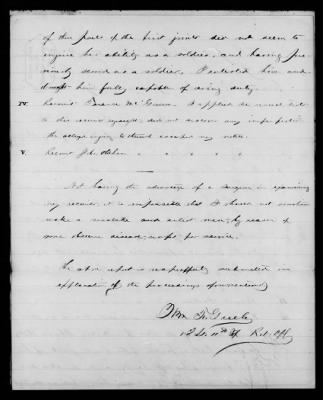 of the parts of the first joints did not seem to
impair his ability as a soldier, and having pre-
viously served as a soldier, I enlisted him and
thought him fully capable of doing duty.
IV. Recruit Terence McGovern. I applied the usual tests
to this recruit myself; did not discover any imperfection
the alleged injury to thumb escaped my notice.
V. Recruit John " " " "
Not having the advantage of a Surgeon in examining
my recruits, it is impossible that I should not sometimes
make a mistake and enlist men, by reason of
some obscure disease, unfit for service.
The above report is respectfully submitted in
explanation of the proceedings
Wm
1st Lt. 11th Inf. Rctg. Off.